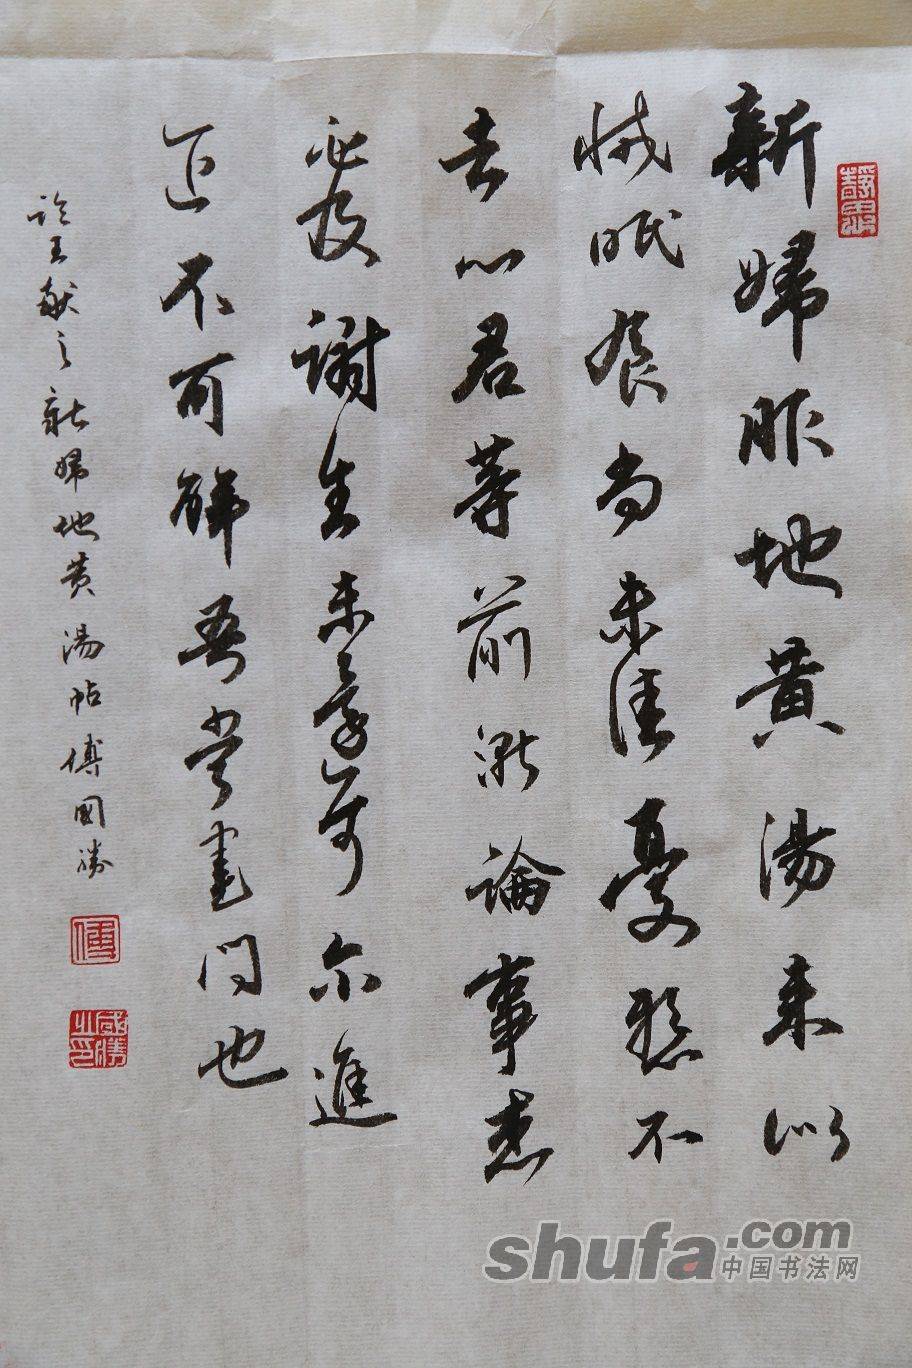 靜思
新婦服地黃湯來似
減眠食尚未佳憂懸不
去心君等前所論事想
必及謝生未還可尔進
退不可解吾當書問也
臨王献之新婦地黄湯帖傅國勝
傅
國勝之印
shufa.com
中国书法网